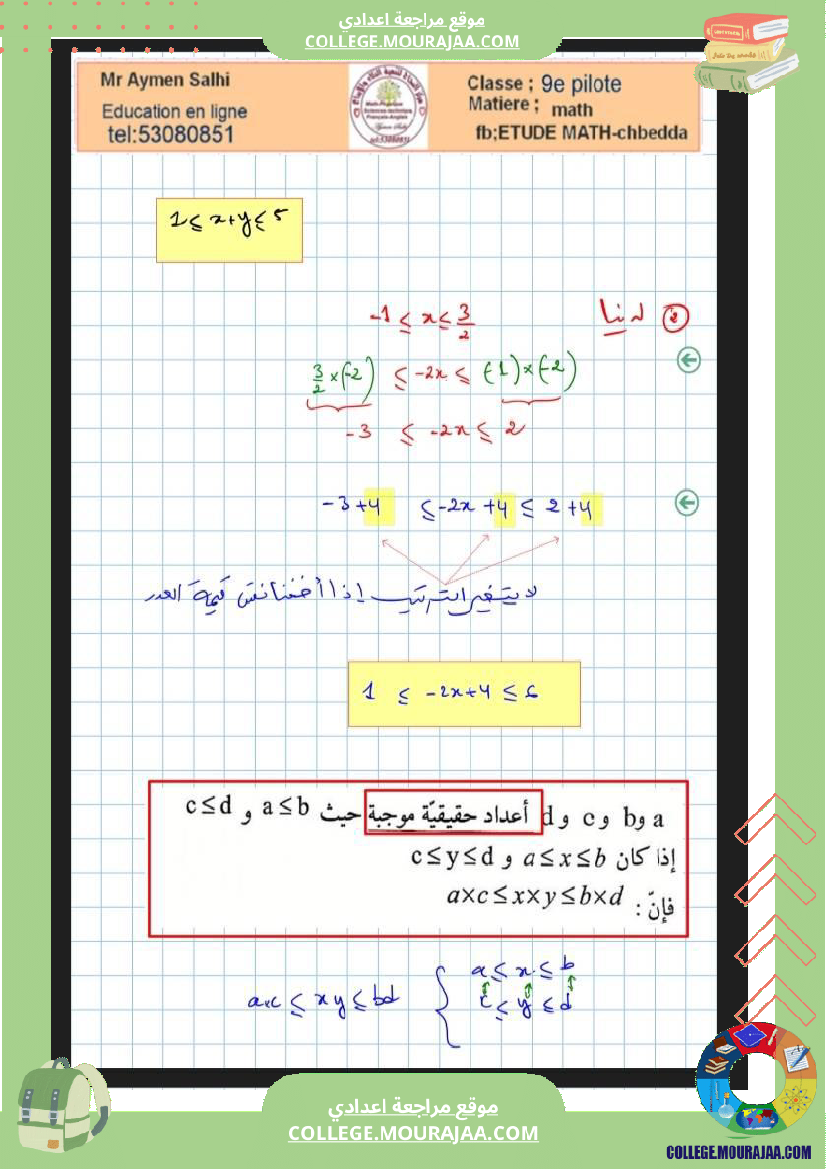 موقع مراجعة اعدادي
COLLEGE.MOURAJAA.COM
Mr Aymen Salhi
Education en ligne
tel:53080851
Classe ; 9e pilote
Matiere ; math
fb;ETUDE MATH-chbedda
1 ≤ x+y ≤ 5
② لدينا -1 ≤ x ≤ 3/2
3/2 × (-2) ≤ -2x ≤ (-1) × (-2)
-3 ≤ -2x ≤ 2
-3+4 ≤ -2x +4 ≤ 2+4
لا يتغير الترتيب إذا أضفنا نفس قيمة العدد
1 ≤ -2x+4 ≤ 6
a وb وc وd أعداد حقيقيّة موجبة حيث a≤b و c≤d
إذا كان a≤x≤b و c≤y≤d
فإنّ : a×c≤x×y≤b×d
a ≤ x ≤ b
c ≤ y ≤ d
a×c ≤ xy ≤ bd
موقع مراجعة اعدادي
COLLEGE.MOURAJAA.COM
COLLEGE.MOURAJAA.COM